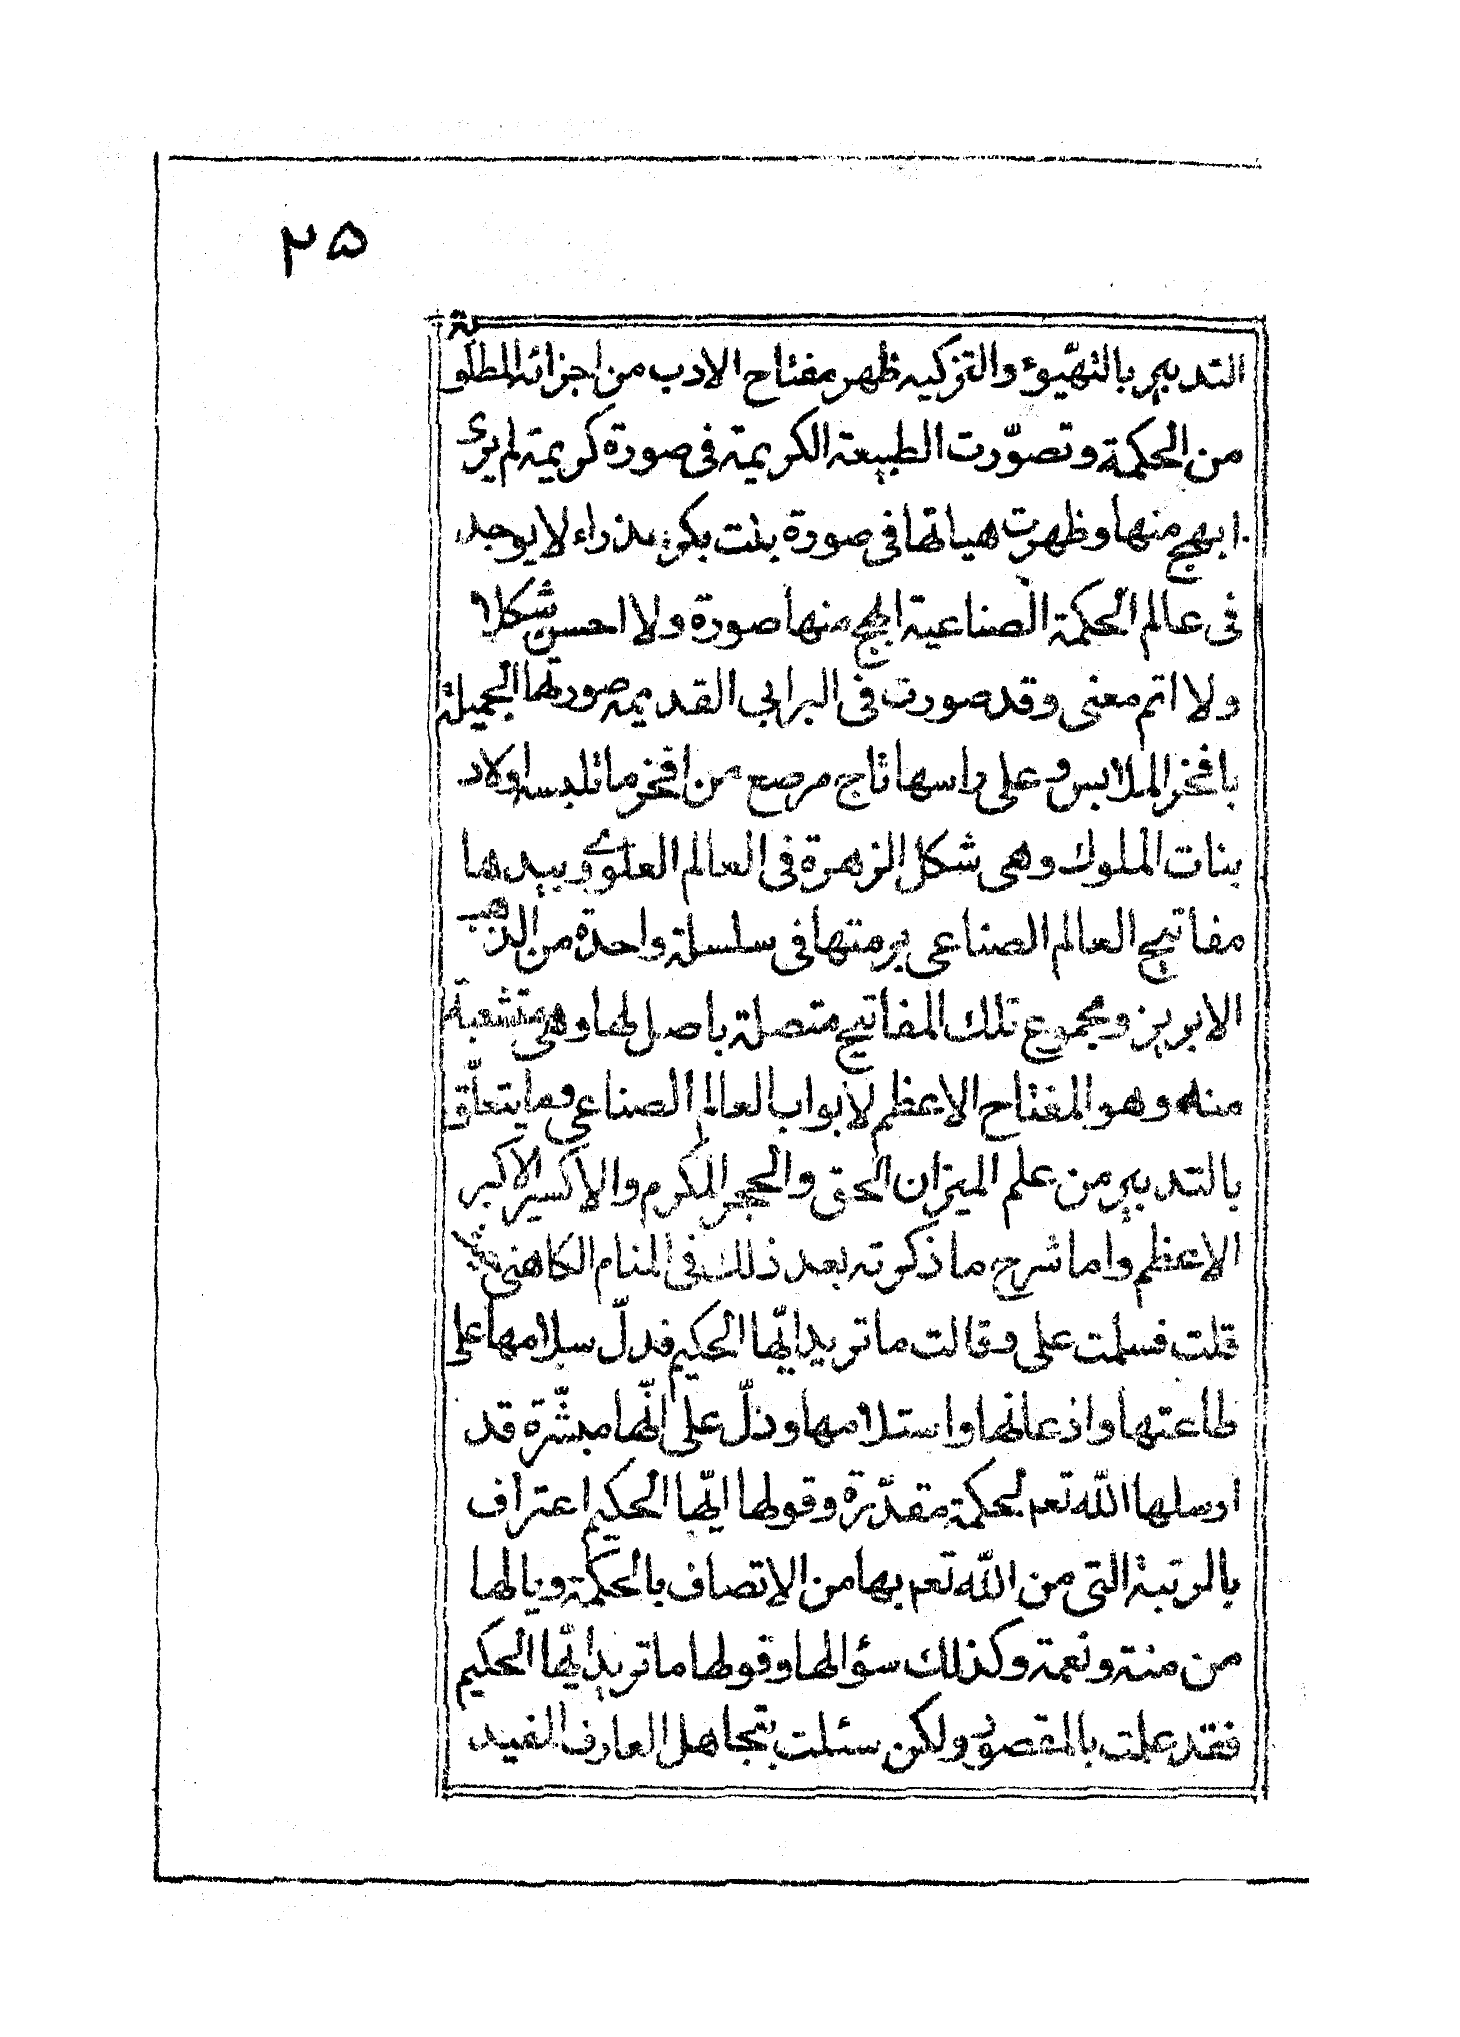 ٢٥
التدبير بالتهيّوء والتزكيه ظهر مفتاح الادب من اجزائه المطلوبة
من الحكمة وتصوّرت الطبيعة الكريمة فى صورة كريمة لم يرى
ابهج منها وظهرت هياتها فى صورة بنت بكر عذراء لا يوجد
فى عالم الحكمة الصناعية ابهج منها صورة ولا احسن شكلا
ولا اتم معنى وقد صورت فى البرابى القديمه صورتها الجميلة
بافخر الملابس وعلى راسها تاج مرصع من افخر ما تلبسه اولاد
بنات الملوك وهى شكل الزهرة فى العالم العلوى وبيدها
مفاتيح العالم الصناعى برمتها فى سلسلة واحدة من الذهب
الابريز ومجموع تلك المفاتيح متصلة باصل لها وهى متشعبة
منه وهو المفتاح الاعظم لابواب العالم الصناعى وما يتعلّق
بالتدبير من علم الميزان الحق والحجر المكرم والاكسير الاكبر
الاعظم واما شرح ما ذكرته بعد ذلك فى المنام الكاهنى
قلت فسلمت على وقالت ما تريد ايّها الحكيم فدلّ سلامها على
طاعتها واذعانها واستلامها ودلّ على انّها مبشّرة قد
ارسلها اللّه تعم لحكمة مقدّرة وقولها ايّها الحكيم اعتراف
بالمرتبة التى من اللّه تعم بها من الاتصاف بالحكمة ويالها
من منة ونعمة وكذلك سؤالها وقولها ما تريد ايّها الحكيم
فقد علمت بالمقصود ولكن سئلت بتجاهل العارف المفيد